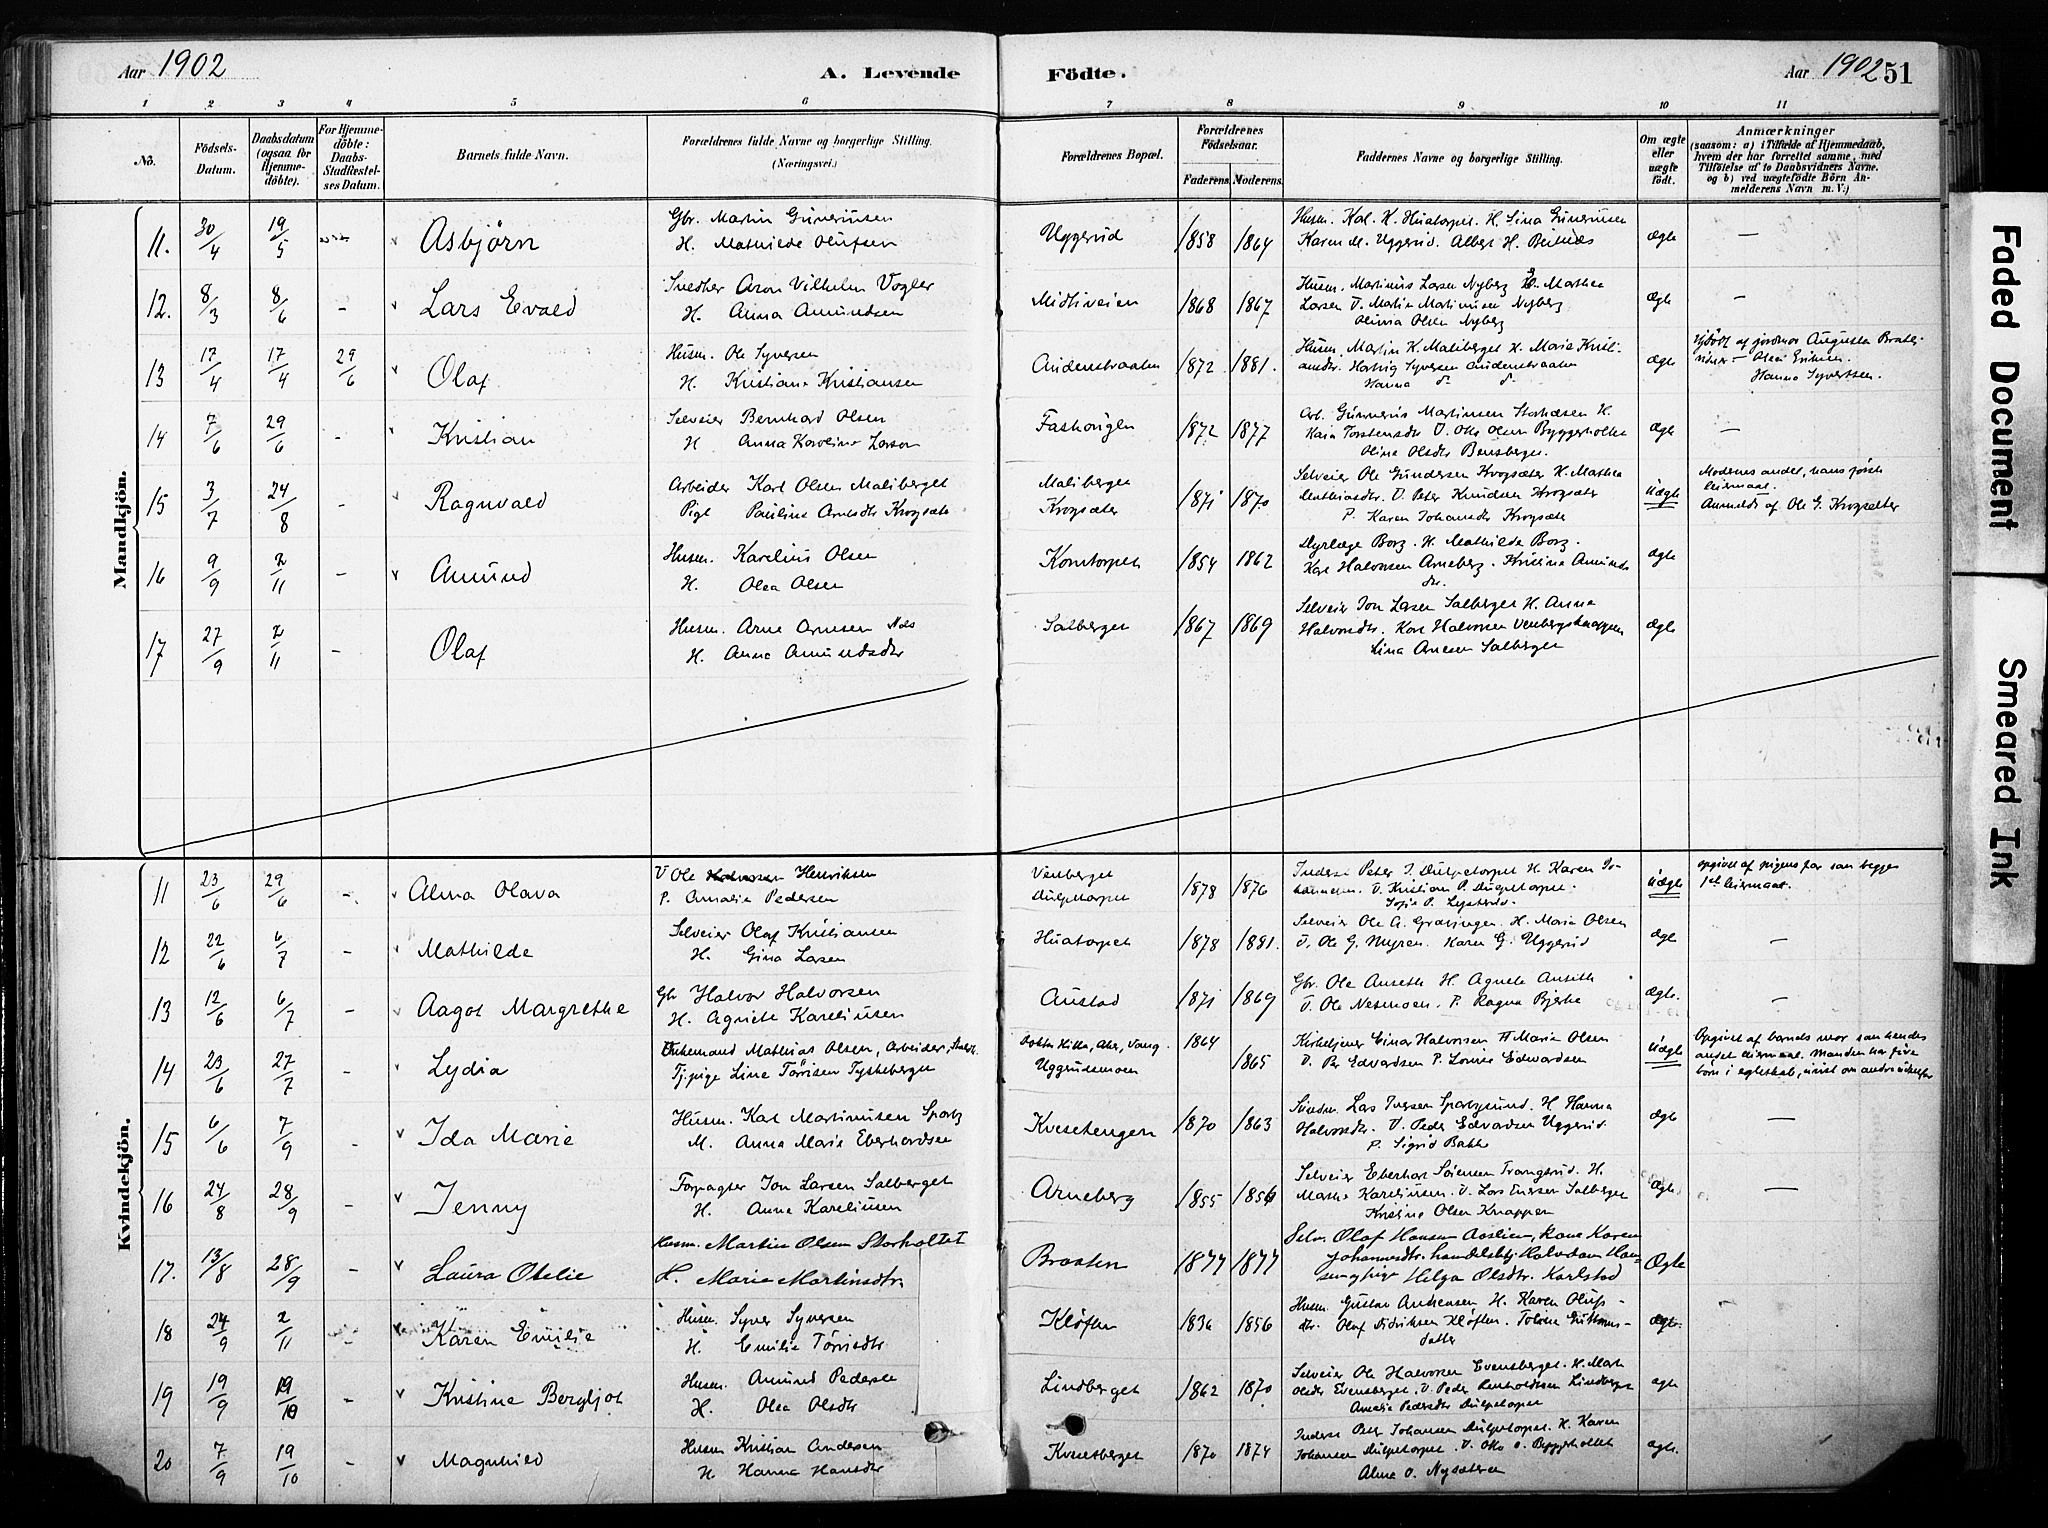 Aar 1902
A. Levende Födte.
Aar 1902 51
1 2 3 4 5 6 7 8 9 10 11
No.
Födsels-Datum.
Daabsdatum (ogsaa for Hjemmedöbte).
For Hjemmedöbte: Daabs-Stadfæstelses Datum.
Barnets fulde Navn.
Forældrenes fulde Navne og borgerlige Stilling. (Næringsvei.)
Forældrenes Bopæl.
Forældrenes Födselsaar.
Faderens. Moderens.
Faddernes Navne og borgerlige Stilling.
Om ægte eller uægte födt.
Anmærkninger
(saasom: a) i Tilfælde af Hjemmedaab, hvem der har forrettet samme, med Tilföielse af to Daabsvidners Navne. og b) ved uægtefödte Börn Anmelderens Navn m. V.)
Mandkjön.
11. 30/4 19/5 Asbjörn
Gbr. Martin Guneriusen
H. Mathilde Olufsen
Uggerud 1858 1864
Karen M. Uggerud. Albert H.
ægte —
12. 8/3 8/6 - Lars Evald
Aron Vilhelm Vogler
H. Anna Amundsen
Midtiveien 1868 1867
Husm. Martinus Larsen Nyberg H. Marthea
Larsen U. Martin Martinusen Nyberg
Olina Olsen Nyberg
ægte —
13 17/4 17/4 29/6 Olaf
Husm. Ole Syversen
H. Kristiane Kristiansen
Audensbraaten 1872 1881.
Husm. Martin K. Maliberget H. Marie Kristi-
ansdr. Hartvig Syversen Audensbraaten
Hanna d. d.
ægte
Hjdöbt af jordmor Augusta Braten
vidner — Olea Eriksen.
Hanna Syvertsen.
14 7/6 29/6 - Kristian
Selveier Bernhard Olsen
H Anna Karoline Larsen
1872 1877
Arb. Gunnerus Martinsen H.
Kari Torstensdtr U. Ole Olsen Byggeholtet
Oline Olsdtr Bensberget.
ægte —
15 3/7 24/8 - Ragnvald
Arbeider Karl Olsen Maliberget
Pige Pauline Arnesdtr Krogsæter
Maliberget
Krogsæter
1871 1870
Selveier Ole Gundersen Krogsæter H. Mathea
Mathiasdtr. U. Peter Knudsen Krogsæter
P. Karen Johansdtr Krogsæter
uægte
Moderens andet, hans förste
leiermaal.
Anmeldt af Ole G. Krogsæter
16 9/9 2/11 - Amund
Husm. Karelius Olsen
H. Olea Olsen
Korntorpet 1854 1862
Dyrlæge Borg. H. Mathilde Borg.
Karl Halvorsen Arneberg. Kristine Amunds
dtr.
ægte
17 27/9 2/11 - Olaf
Husm. Arne Arnesen
H. Anna Amundsdtr
Salberget 1867 1869
Selveier Jon Larsen Salberget H. Anna
Halvorsdtr. Karl Halvorsen Venbergsknappen
Lina Arnesen Salberget
ægte
Kvindekjön.
11 23/6 29/6 - Alma Olava
U Ole Halvorsen Henriksen
P. Amalie Pedersen
Venberget
Dulpetorpet
1878 1876
Inderst Peter J. Dulpetorpet H. Karen Jo-
hannesen. U. Kristian P. Dulpetorpet.
uægte
opgivet af pigens far som begges
1st leiermaal.
12 22/6 6/7 - Mathilde
Selveier Olaf Kristiansen
H. Gina Larsen
Huatorpet 1878 1881.
Selveier Ole A. Grasjngen. H. Maria Olsen
U. Ole G. Myren. Karen G. Uggerud
ægte —
13 12/6 6/7 - Aagot Margrethe
Gbr Halvor Halvorsen
H. Agnete Kareliusen
Austad 1871 1869
Gbr. Ole Anseth H. Agnete Anseth
U. Ole Nesmoen. P. Ragna Bjerke
ægte. —
14 23/6 27/7 - Lydia
Enkemand Mathias Olsen, Arbeider,
Tj.pige Lina Törrisen Tyskeberget
Uggerudsmoen
1864 1865
Kirketjener Einar Halvorsen H Maria Olsen
U. Per Edvardsen P. Lovise Edvardsen
uægte
Opgivet af barnets mor som hendes
andet leiermaal. Manden har flere
börn i egteskab, uvist om andre udenfor
15 6/6 7/9 - Ida Marie
Husm. Karl Martinusen Sparby
M. Anna Marie Eberhardsen
Kvesetengen 1870 1863
Lars Iversen Sparbysund. H Hanna
Halvorsdtr. U. Peder Edvardsen Uggerud
P. Sigrid Bakke
ægte —
16 24/8 28/9 - Jenny
Forpagter Jon Larsen Salberget
H. Anna Kareliusen
Arneberg 1855 1856
Selveier Eberhart Sörensen Trangerud. H.
Marthe Kareliusen. U. Lars Iversen Salberget
Kristine Olsen Knappen
ægte. —
17. 13/8 28/9 - Laura Otelie
Husm. Martin Olsen Storholtet
H. Marie Martinsdtr.
Braaten 1877 1877
Selv. Olaf Hansen Aaslien, Kone Karen
Johannesdtr. handelsbtj. Halvdan Han-
sen, pige Helga Olsdtr. Karlstad
Ægte
18 24/9 2/11 - Karen Emilie
Husm. Syver Syversen
H. Emilie Törrisdtr
Klöften 1836 1856
Husm. Gustav Andreasen H. Karen Olufs-
dtr. Olaf Didriksen Klöften. Tolvine Guttorms-
datter
ægte.
19 19/9 19/10 - Kristine Bergljot
Husm. Amund Pedersen
H. Olea Olsdtr
Lindberget 1862 1870
Selveier Ole Halvorsen Evensberget. H. Marte
Olsdtr Evensberget. U. Peder Lindberget
Amalie Pedersdtr Dulpetorpet
ægte
20 7/9 19/10 - Magnhild
Husm Kristian Andersen
H Hanna Hansdtr
Kvesetberget 1870 1874
Inderst Peter Johansen Dulpetorpet. H. Karen
Johansen Dulpetorpet. U. Ole O. Byggeholtet
Alma O. Nysæteren
ægte.
Faded Document
Smeared Ink